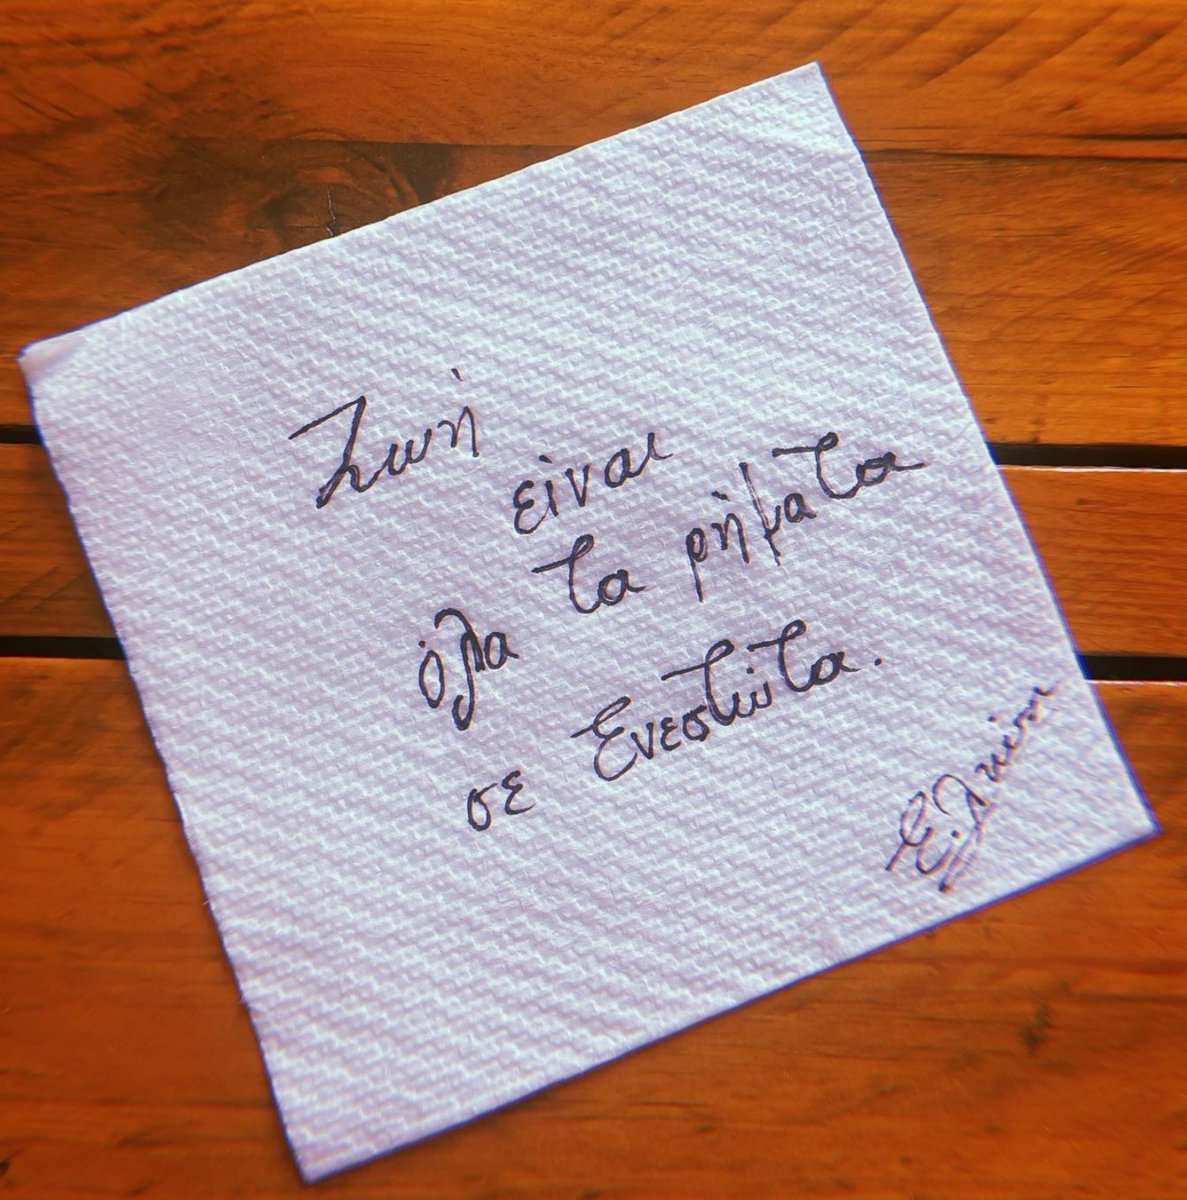 Ζωή
είναι
όλα τα ρήματα
σε Ενεστώτα.